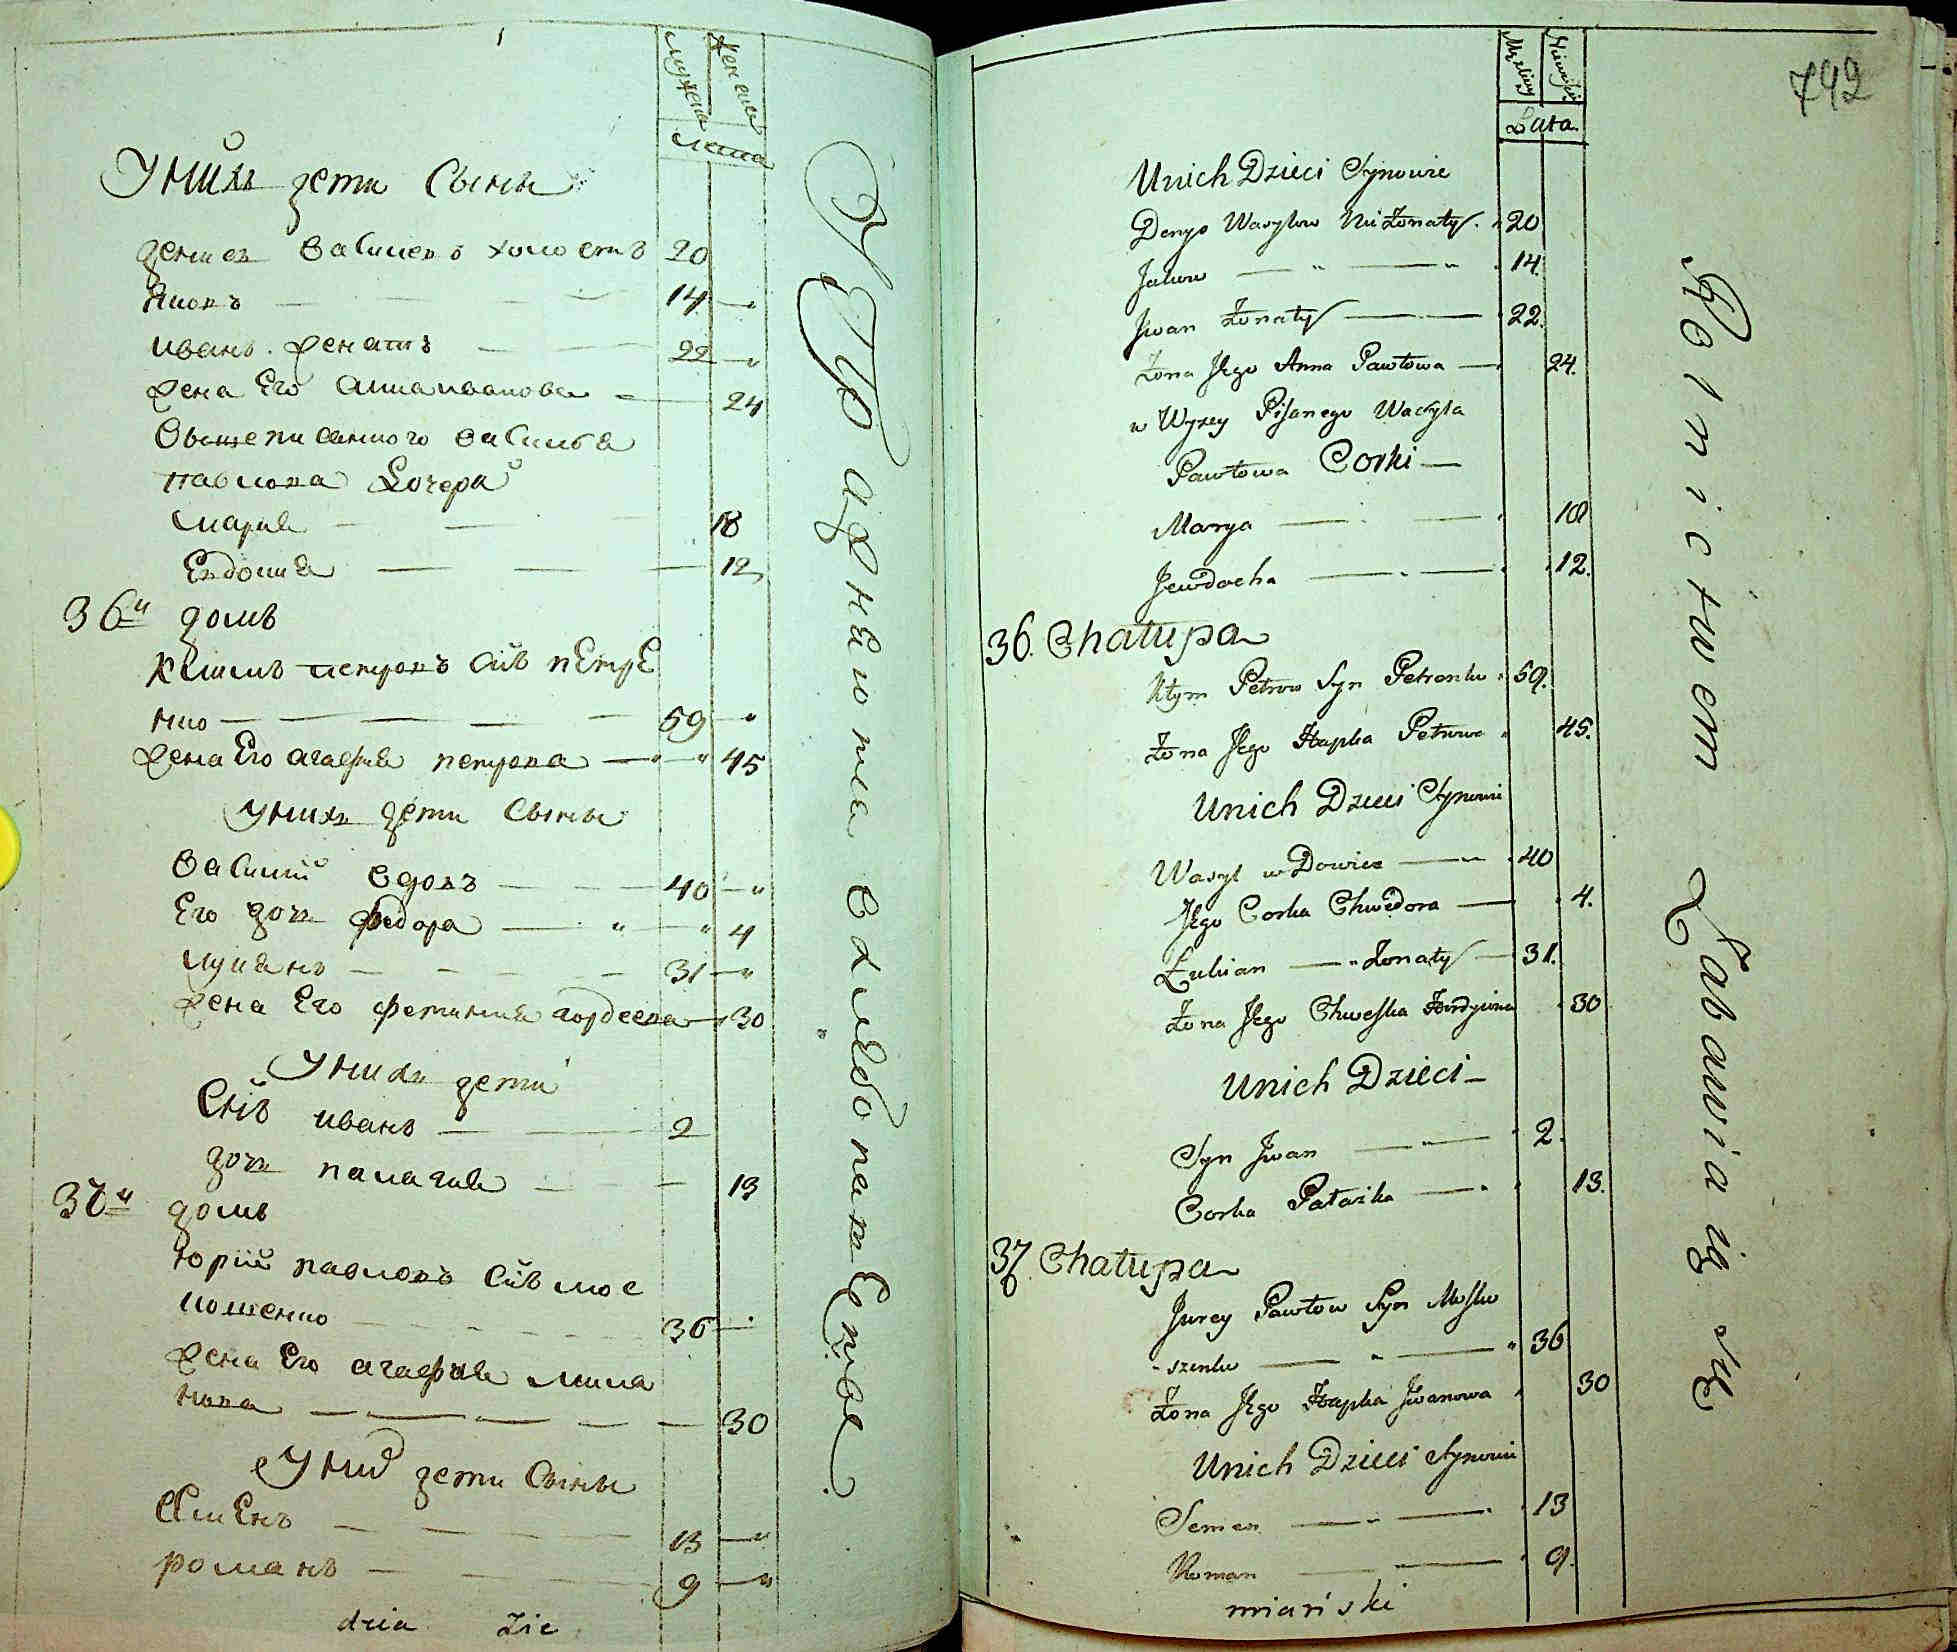 мужеска
женска
лета
У них дети Сыны
денисъ василевъ холостъ 20
Яковъ 14 "
иванъ женатъ 22 "
жена Его анна иванова 24
вышеписанного василия
павлова Дочери
мария 18
Евдокия 12
36й домъ
климъ петровъ сйъ петре
нко 59 "
жена Его агафия петрова " " 45
У них дети Сыны
василий вдовъ 40 "
Его дочь федора " " 4
лукянъ 31 "
жена Его фетиния гордеева 30
У них дети
Сйъ иванъ 2
дочь палагия 13
37й домъ
юрий павловъ сйъ мос
кошенко 36
жена Его агафия
30
У них дети Сыны
Семенъ 13 "
романъ 9 "
dzia zie
Упражняются в хлебопашестве
792
Męzkiey
Żeńskiey
Lata
Unich Dzieci Synowie
Denys Wasylow Nie Żonaty " 20
Jakow " " 14
Jwan Żonaty 22.
Żona Jego Anna Pawłowa 24.
w Wyzey Pisanego Wasyla
Pawłowa Corki
Marya 18
Jewdocha 12.
36. Chałupa
Kłym Petrow Syn Petrenko 59.
Żona Jego Hapka Petrowa 45.
Unich Dzieci Synowie
Wasyl wDowiec 40
Jego Corka Chwedora 4.
Łukian " Żonaty 31.
Żona Jego Chweska Hordyiowa 30
Unich Dzieci
Syn Jwan " 2.
Corka Pałażka 13.
37. Chałupa
Jurey Pawłow Syn Mosko
szenko " " 36
Żona Jego Hapka Jwanowa 30
Unich Dzieci Synowie
Semen " 13
Roman 9.
miański
Rolnictwem Zabawia ią się